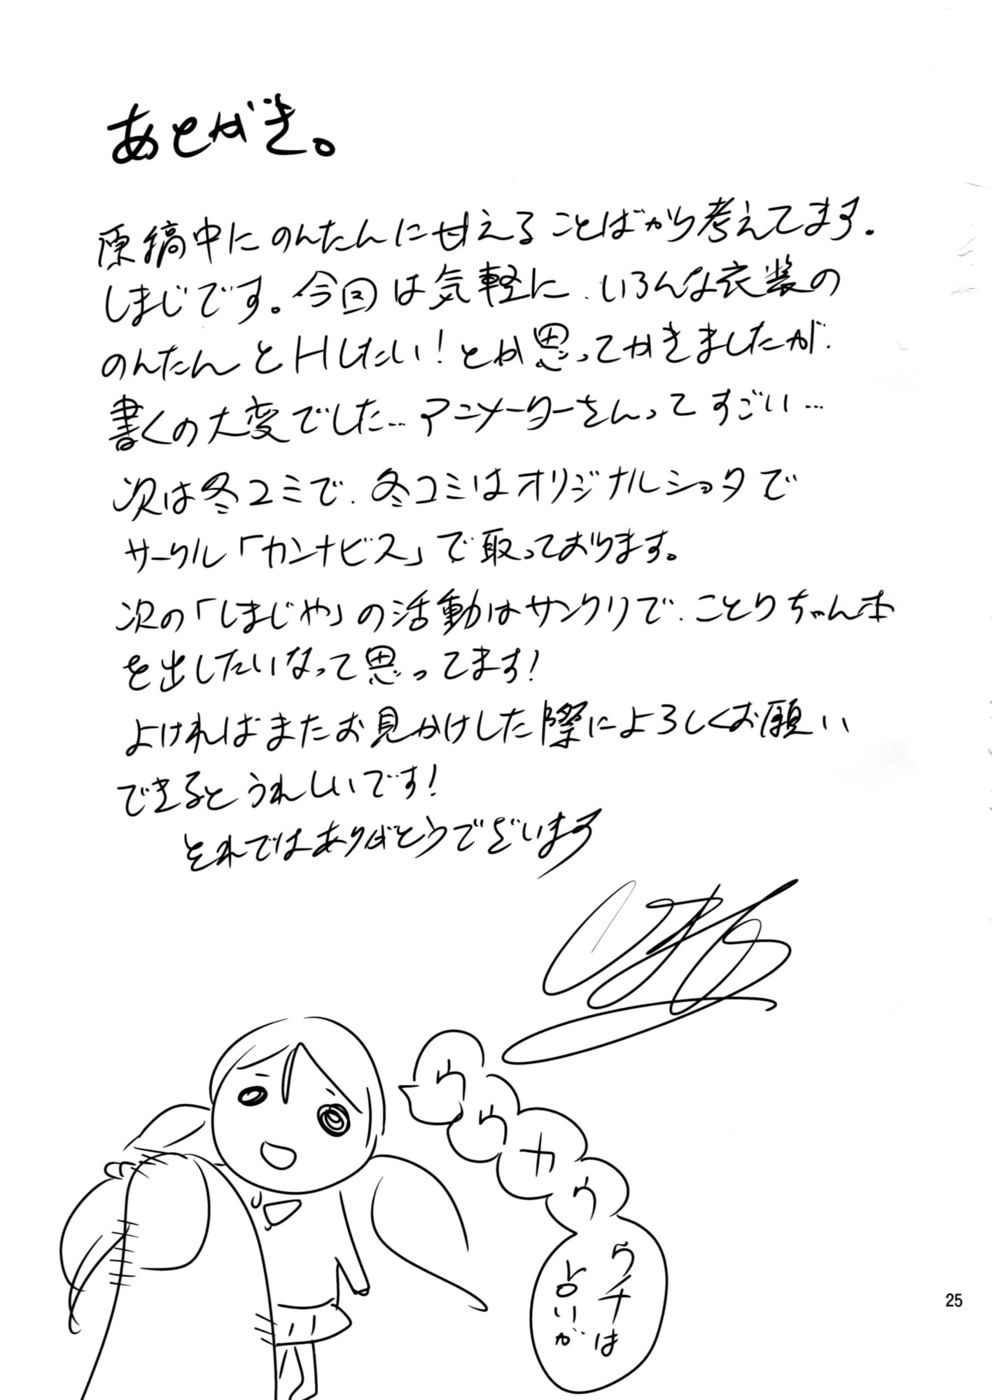 あとがき。
原稿中にのんたんに甘えることばかり考えてます。
しまじです。今回は気軽に、いろんな衣装の
のんたんとHしたい!とか思ってかきましたが、
書くの大変でした…アニメーターさんってすごい…
次は冬コミで、冬コミはオリジナルショタで
サークル「カンナビス」で取っております。
次の「しまじや」の活動はサンクリで、ことりちゃん本
を出したいなって思ってます!
よければまたお見かけした際によろしくお願い
できるとうれしいです!
それではありがとうでざいます
ウ
ウ
カ
ウ
ウチは
25